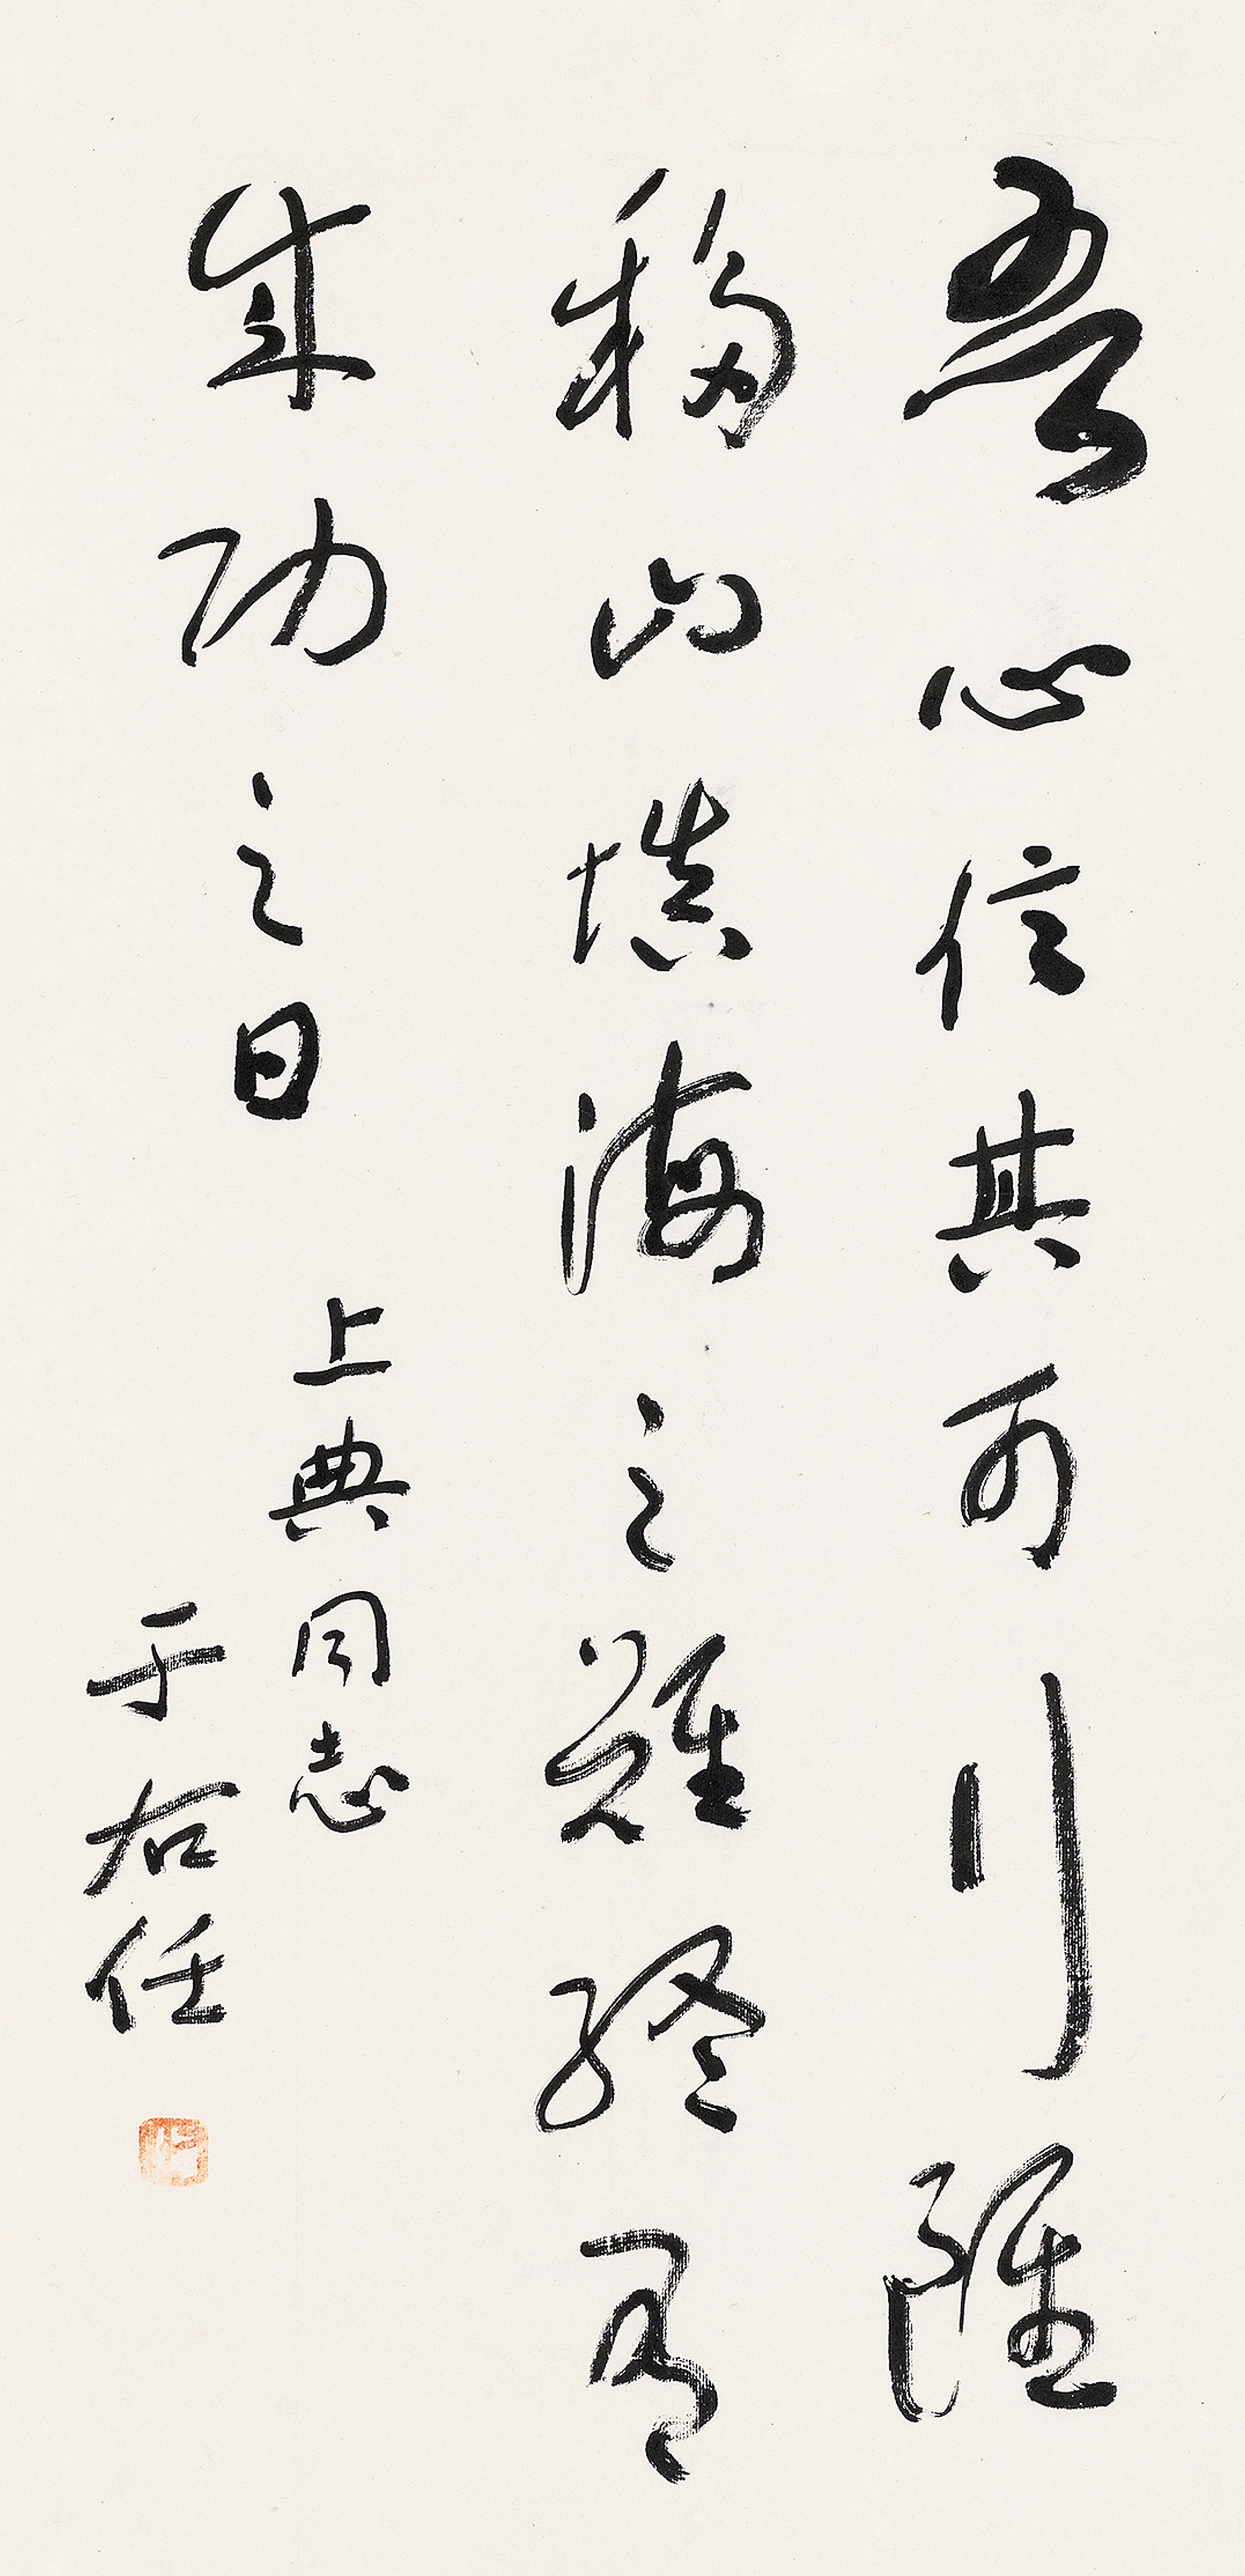 吾心信其可行雖
移山填海之難終有
成功之日
上典同志
于右任